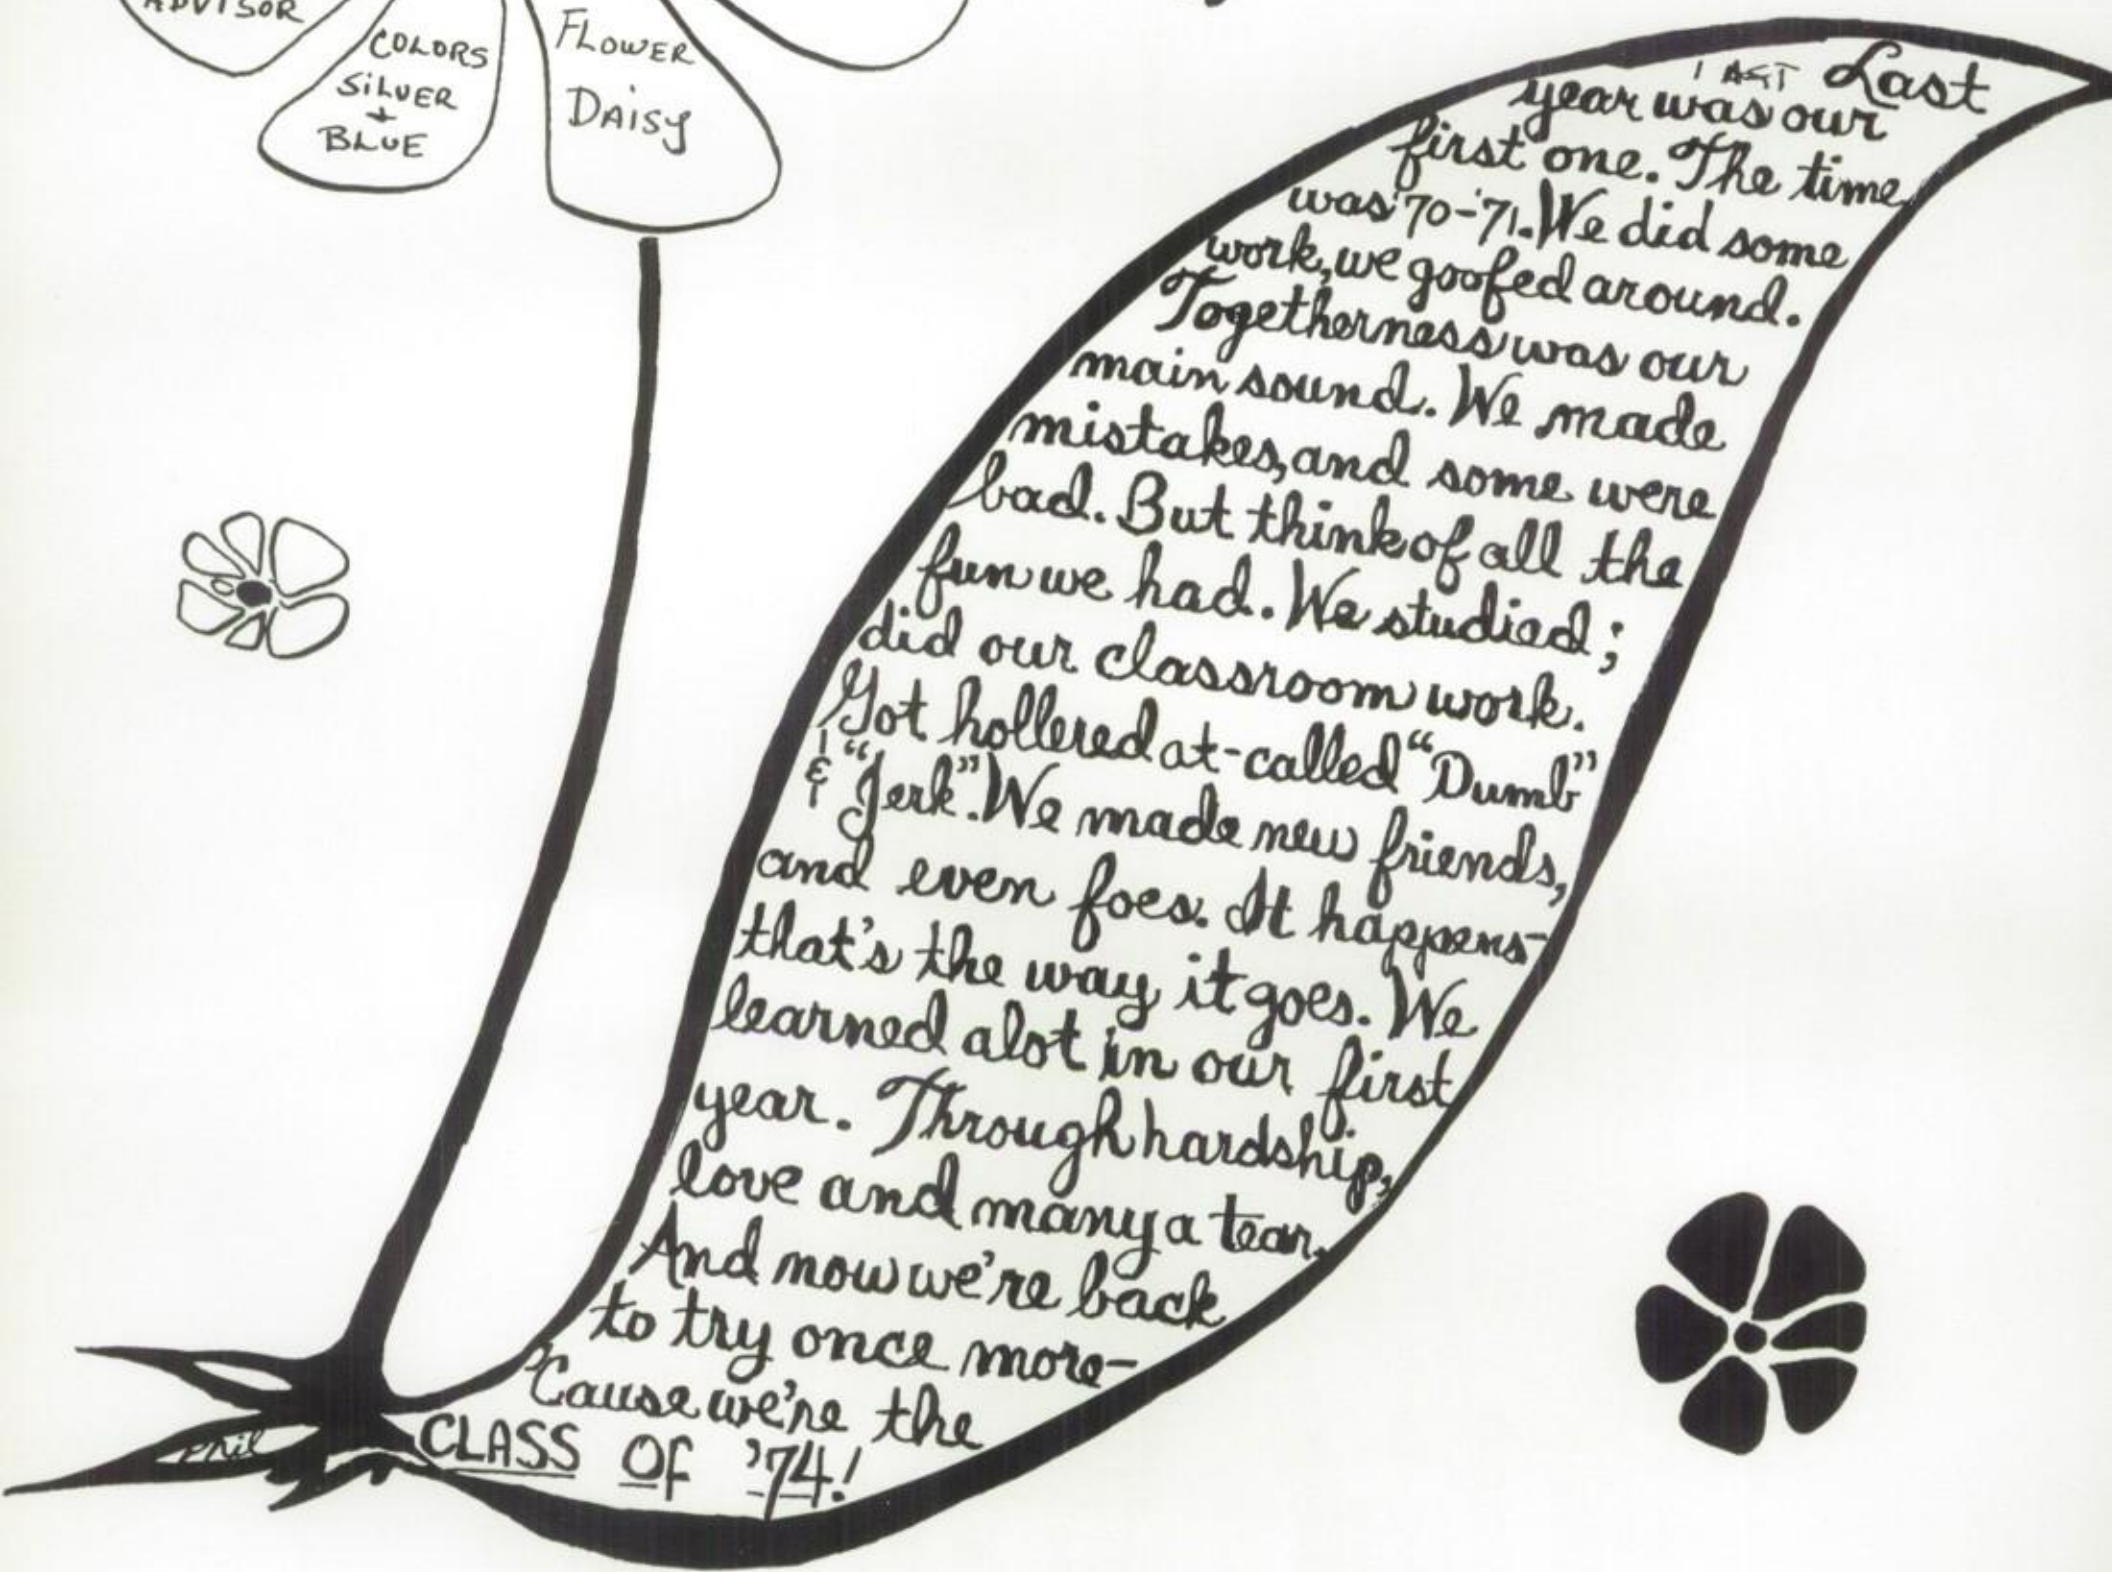 ADVISOR
COLORS
SILVER
+
BLUE
FLOWER
DAISY
LAST Last
year was our
first one. The time
was '70-'71. We did some
work, we goofed around.
Togetherness was our
main sound. We made
mistakes, and some were
bad. But think of all the
fun we had. We studied;
did our classroom work.
Got hollered at-called "Dumb"
& "Jerk". We made new friends,
and even foes. It happens-
that's the way it goes. We
learned alot in our first
year. Through hardship,
love and many a tear.
And now we're back
to try once more-
'Cause we're the
CLASS Of '74!
Phil